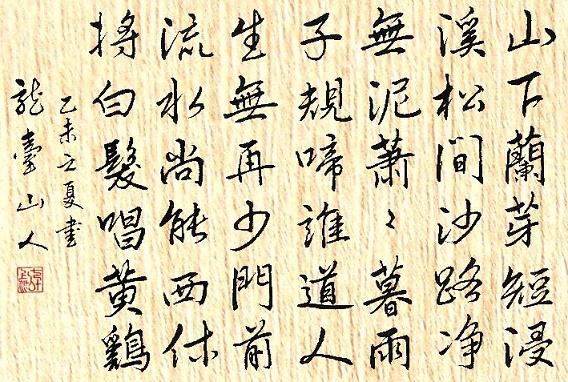 山下蘭芽短浸
溪松間沙路净
無泥蕭〻暮雨
子規啼誰道人
生無再少門前
流水尚能西休
将白髮唱黄鷄
乙未之夏書
龍臺山人